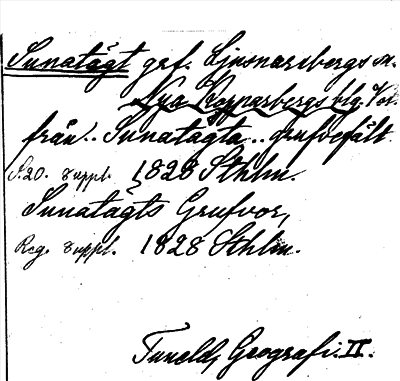 Sunatägt grf. Ljusnarsbergs sn.
Nya Kopparbergs blg. Ö/or.
från.. Sunatägta.. grufvefält
S. 20. Suppl. 1828 Sthlm.
Sunatägts Grufvor,
Reg. Suppl. 1828 Sthlm.
Tuneld, Geografi. II.